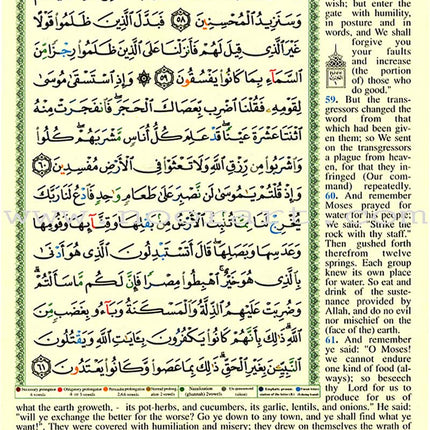 وَسَنَزِيدُ ٱلْمُحْسِنِينَ ٥٨ فَبَدَّلَ ٱلَّذِينَ ظَلَمُوا۟ قَوْلًا
غَيْرَ ٱلَّذِى قِيلَ لَهُمْ فَأَنزَلْنَا عَلَى ٱلَّذِينَ ظَلَمُوا۟ رِجْزًا مِّنَ
ٱلسَّمَآءِ بِمَا كَانُوا۟ يَفْسُقُونَ ٥٩ وَإِذِ ٱسْتَسْقَىٰ مُوسَىٰ
لِقَوْمِهِۦ فَقُلْنَا ٱضْرِب بِّعَصَاكَ ٱلْحَجَرَ فَٱنفَجَرَتْ مِنْهُ
ٱثْنَتَا عَشْرَةَ عَيْنًا قَدْ عَلِمَ كُلُّ أُنَاسٍ مَّشْرَبَهُمْ كُلُوا۟
وَٱشْرَبُوا۟ مِن رِّزْقِ ٱللَّهِ وَلَا تَعْثَوْا۟ فِى ٱلْأَرْضِ مُفْسِدِينَ ٦٠
وَإِذْ قُلْتُمْ يَـٰمُوسَىٰ لَن نَّصْبِرَ عَلَىٰ طَعَامٍ وَٰحِدٍ فَٱدْعُ لَنَا رَبَّكَ
يُخْرِجْ لَنَا مِمَّا تُنۢبِتُ ٱلْأَرْضُ مِنۢ بَقْلِهَا وَقِثَّآئِهَا وَفُومِهَا
وَعَدَسِهَا وَبَصَلِهَا قَالَ أَتَسْتَبْدِلُونَ ٱلَّذِى هُوَ أَدْنَىٰ
بِٱلَّذِى هُوَ خَيْرٌ ٱهْبِطُوا۟ مِصْرًا فَإِنَّ لَكُم مَّا سَأَلْتُمْ
وَضُرِبَتْ عَلَيْهِمُ ٱلذِّلَّةُ وَٱلْمَسْكَنَةُ وَبَآءُو بِغَضَبٍ مِّنَ
ٱللَّهِ ذَٰلِكَ بِأَنَّهُمْ كَانُوا۟ يَكْفُرُونَ بِـَٔايَـٰتِ ٱللَّهِ وَيَقْتُلُونَ
ٱلنَّبِيِّـۧنَ بِغَيْرِ ٱلْحَقِّ ذَٰلِكَ بِمَا عَصَوا۟ وَّكَانُوا۟ يَعْتَدُونَ ٦١
wish; but enter the
gate with humility,
in posture and in
words, and We shall
forgive you
your faults
and increase
(the portion
of) those who
do good."
59. But the trans-
gressors changed the
word from that
which had been giv-
en them; so We sent
on the transgressors
a plague from heav-
en, for that they in-
fringed (Our com-
mand) repeatedly.
60. And remember
Moses prayed for
water for his people;
We said: "Strike the
rock with thy staff."
Then gushed forth
therefrom twelve
springs. Each group
knew its own place
for water. So eat and
drink of the suste-
nance provided by
Allah, and do no evil
nor mischief on the
(face of the) earth.
61. And remember
ye said: "O Moses!
we cannot endure
one kind of food (al-
ways); so beseech
thy Lord for us to
produce for us of
what the earth groweth, - its pot-herbs, and cucumbers, its garlic, lentils, and onions." He said:
"will ye exchange the better for the worse? Go ye down to any town, and ye shall find what ye
want!". They were covered with humiliation and misery; they drew on themselves the wrath of